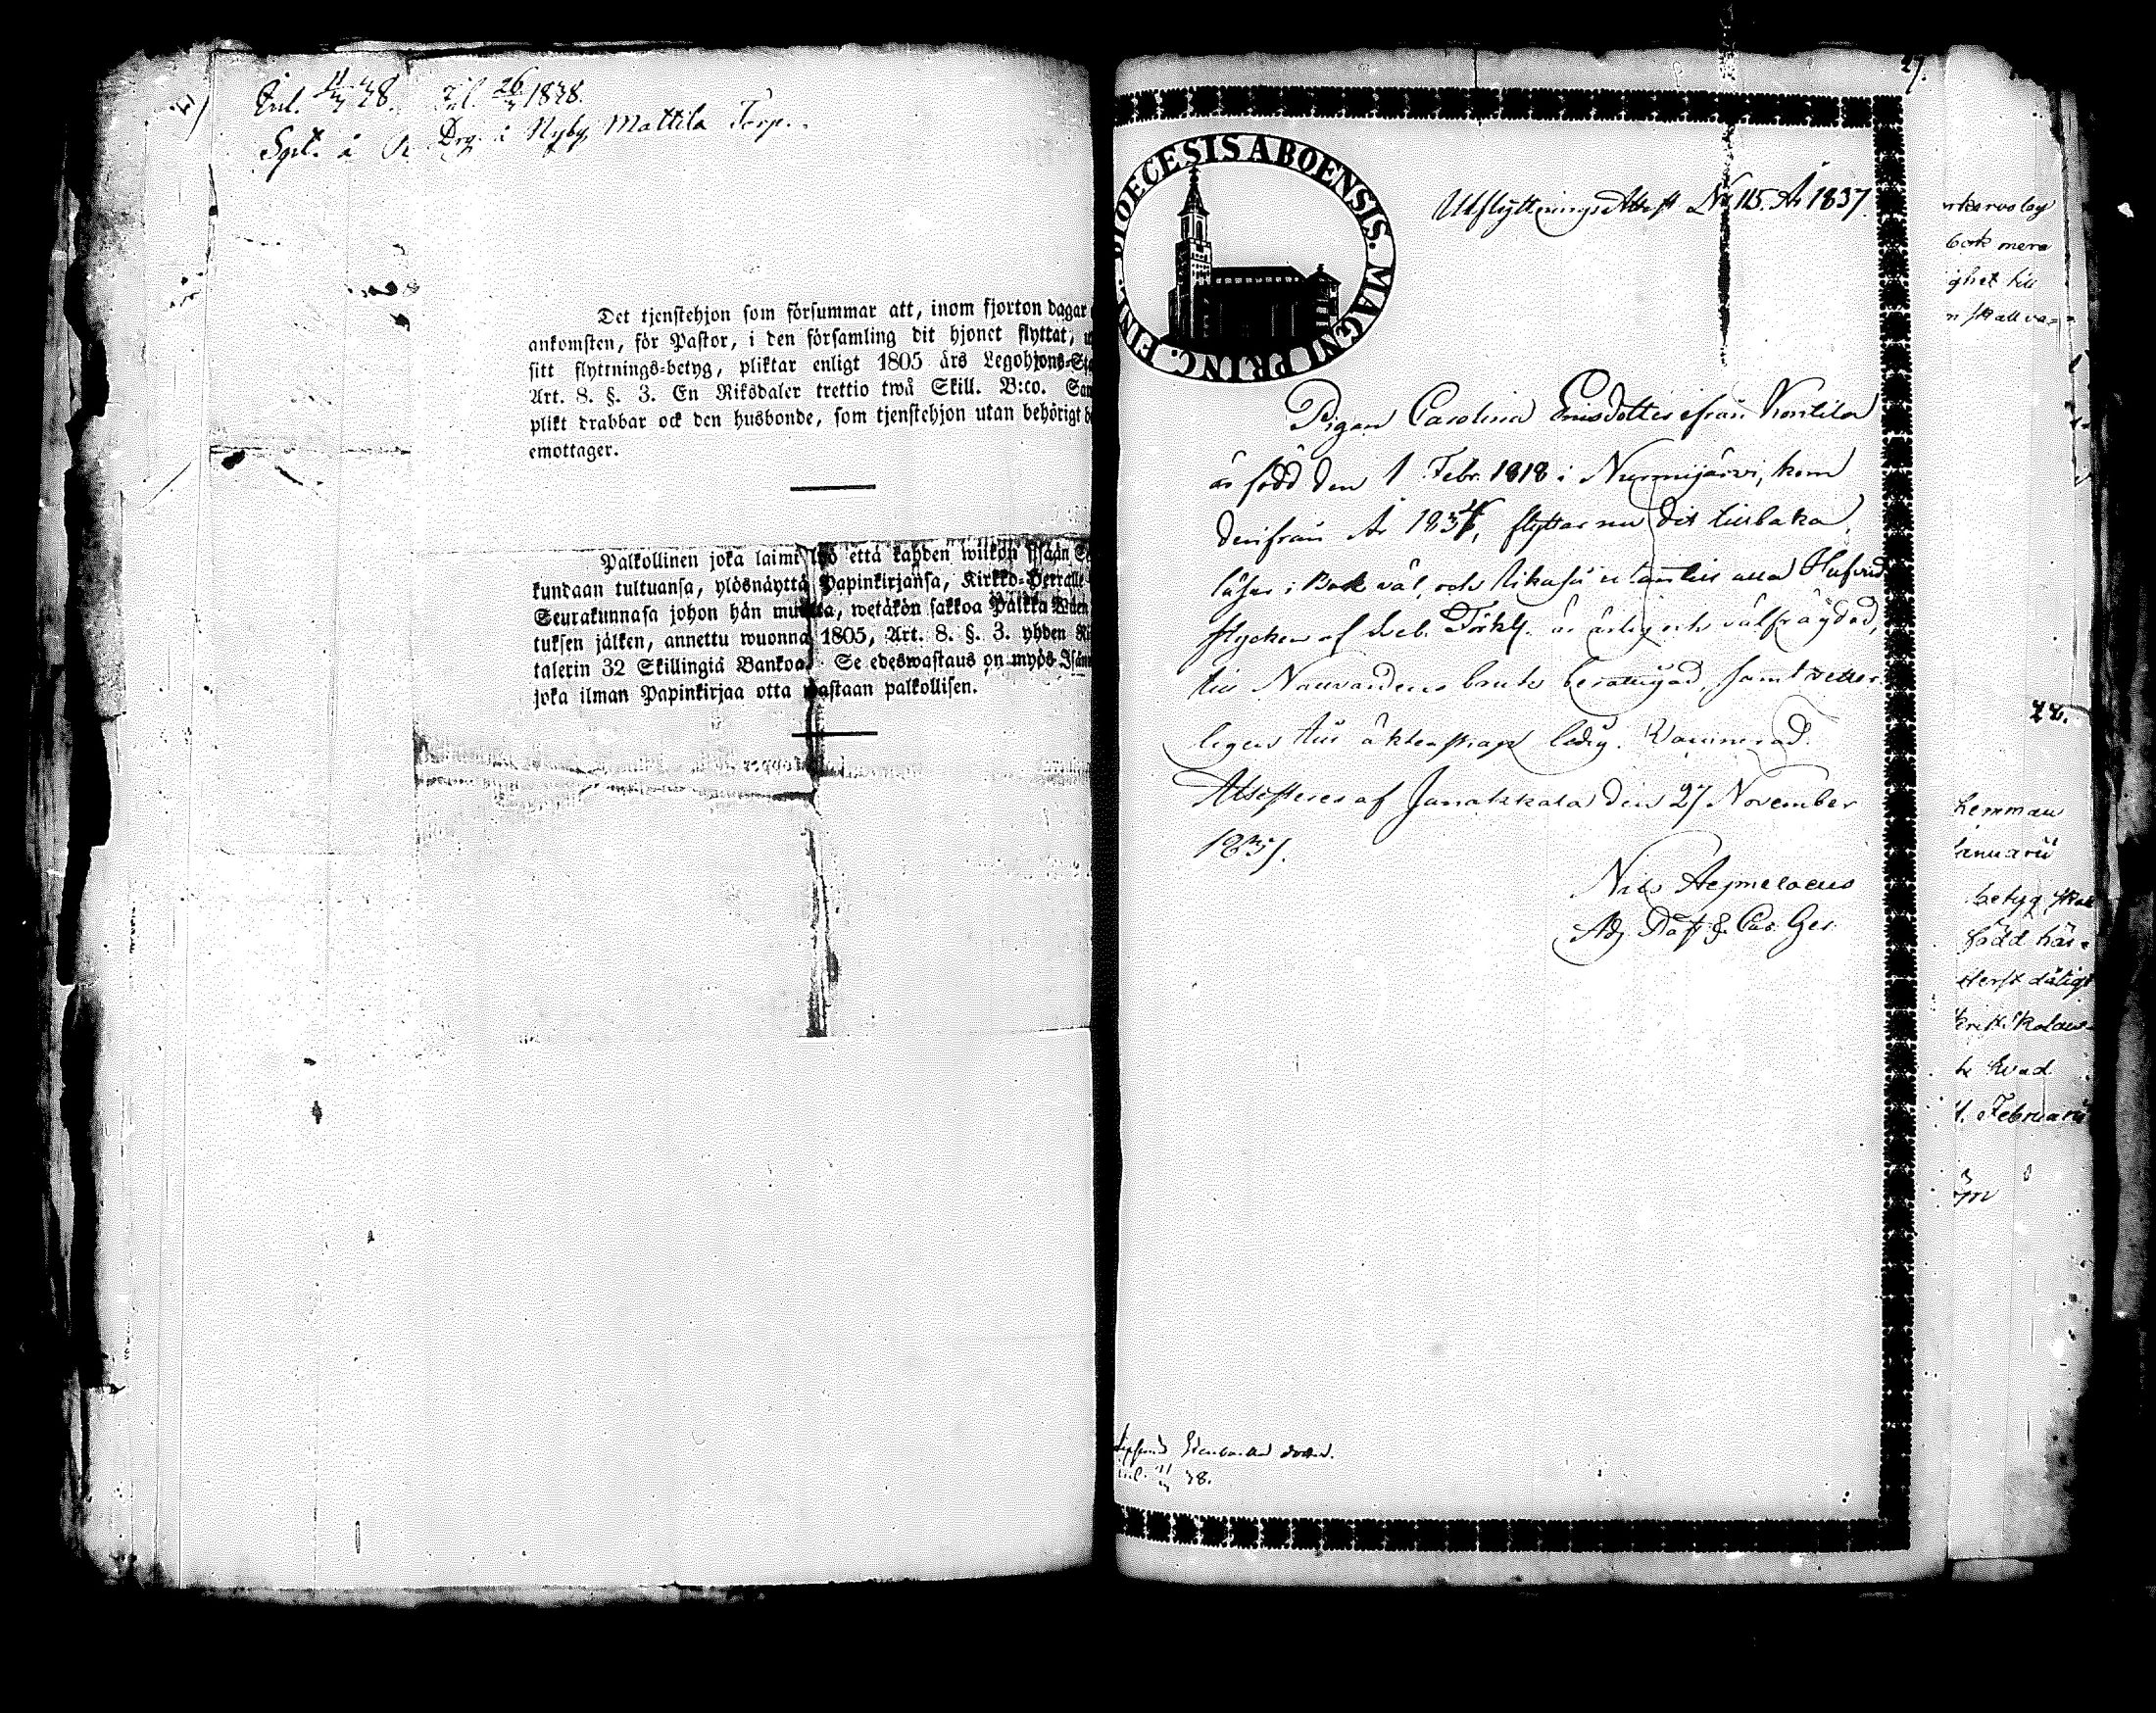 Inl. 11/3 38. Inl. 26/3 1838.
Sgst. å Drg. å Nyby, Mattila Torp.
Det tjenstehjon som försummar att, inom fjorton dagar
ankomsten, för Pastor, i den församling dit hjonet flyttat,
sitt flyttnings-betyg, pliktar enligt 1805 års Legohjons-
Art. 8. §. 3. En Riksdaler trettio twå Skill. B:co.
plikt drabbar ock den husbonde, som tjenstehjon utan behörigt
emottager.
Palkollinen joka laimi lyö että kahden wiikon sisään
kundaan tultuansa, ylösnäyttä Papinkirjansa, Kirkko-Herralle
Seurakunnasa johon hän muutta, wetäkön sakkoa Palkka
tuksen jälken, annettu wuonna 1805, Art. 8. §. 3. yhden
talerin 32 Skillingiä Bankoa. Se edeswastaus on myös
joka ilman Papinkirjaa otta wastaan palkollisen.
27.
DIOECESIS ABOENSIS. MAGNI PRINC. FINL.
Utflyttnings Attest No 115. År 1837.
Pigan Carolina Ericsdotter ifrån Kontila
är född den 1 Febr. 1818 i Nurmijärvi, kom
derifrån År 1834, flyttar nu dit tillbaka,
läser i Bok väl, och likaså utantill alla Hufvud
stycken af Sveb. Förkl. är ärlig och välfrägdad,
till Nattvardens bruk berättigad, samt veter-
ligen till äktenskap ledig. Vaccinerad.
Attesteres af Janakkala den 27 November
1837.
Nils Aejmelaeus
Adj. Past. & Cur. Ges.
38.
bok mera
ghet till
n skall va-
28.
hemman
Januarii
betyg, skall
född här-
dåligt
kolaus-
Qvad
1. Februarii